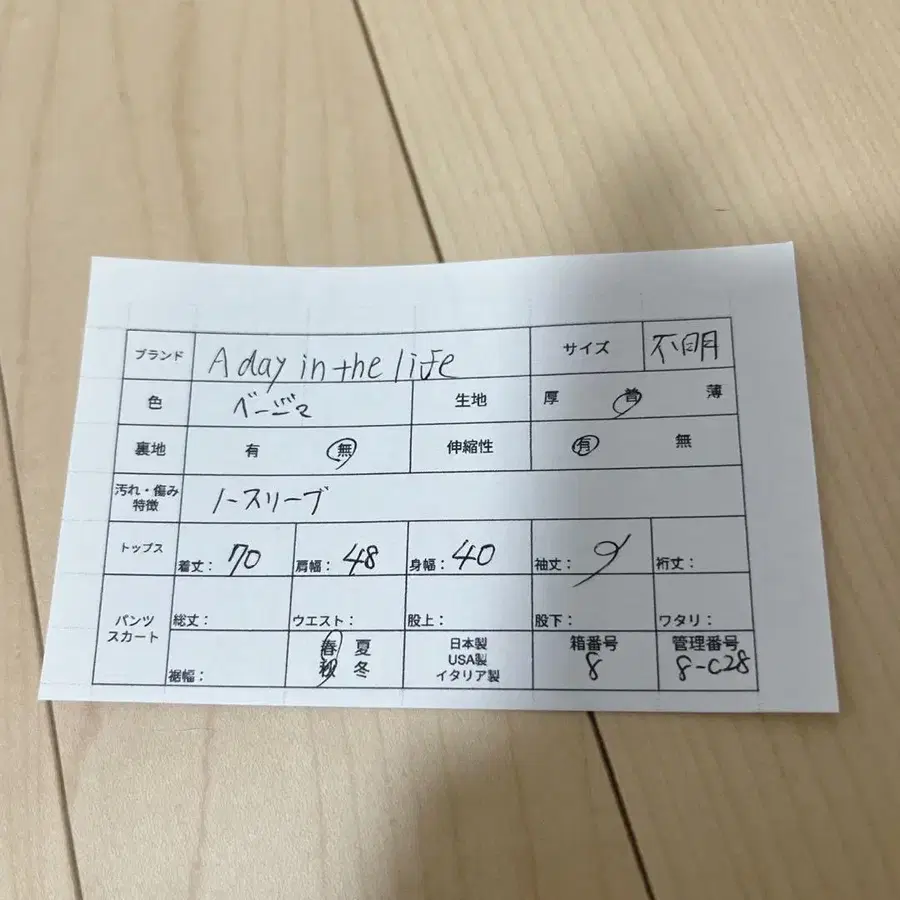 ブランド A day in the life サイズ 不明
色 ベージュ 生地 厚 普 薄
裏地 有 無 伸縮性 有 無
汚れ・傷み
特徴 ノースリーブ
トップス 着丈： 70 肩幅： 48 身幅： 40 袖丈： 9 裄丈：
パンツ
スカート 総丈： ウエスト： 股上： 股下： ワタリ：
裾幅： 春 夏 日本製 箱番号 管理番号
秋 冬 USA製 8 8-C28
イタリア製